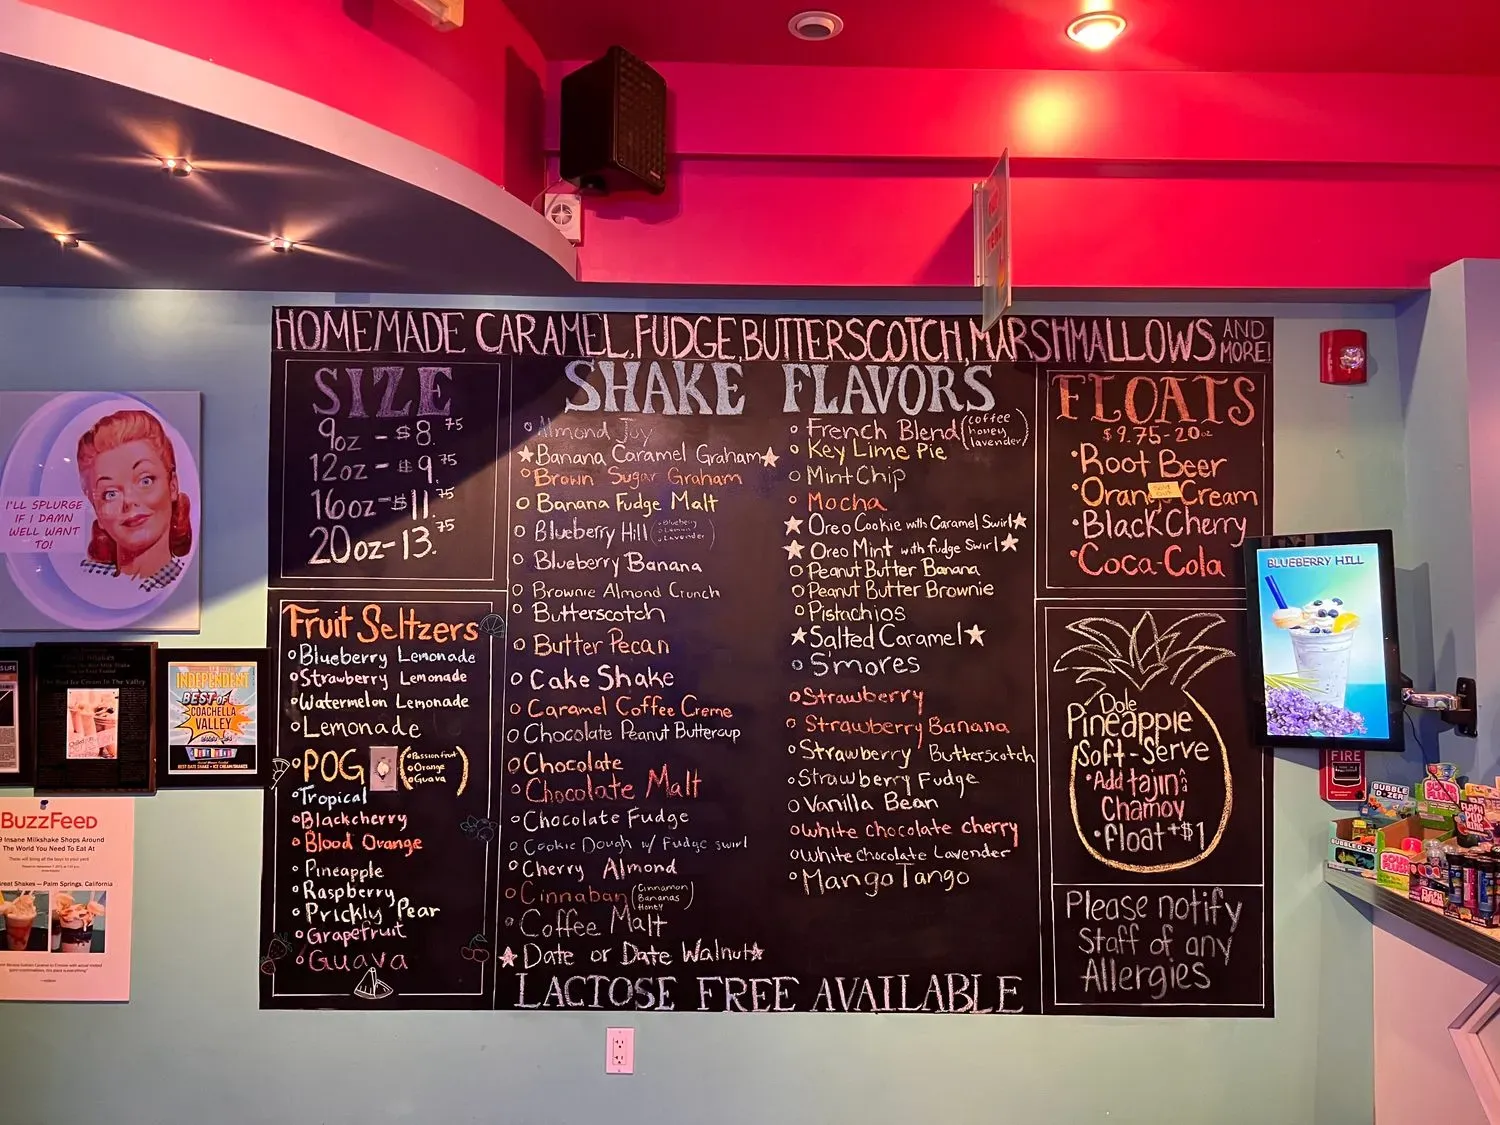 HOMEMADE CARAMEL, FUDGE, BUTTERSCOTCH, MARSHMALLOWS AND MORE!
SIZE
9oz - $8.75
12oz - $9.75
16oz - $11.75
20oz - 13.75
Fruit Seltzers
Blueberry Lemonade
Strawberry Lemonade
Watermelon Lemonade
Lemonade
POG (Passionfruit
Orange
Guava)
Tropical
Blackcherry
Blood Orange
Pineapple
Raspberry
Prickly Pear
Grapefruit
Guava
SHAKE FLAVORS
Almond Joy
Banana Caramel Graham
Brown Sugar Graham
Banana Fudge Malt
Blueberry Hill (Blueberry
Lemon
Lavender)
Blueberry Banana
Brownie Almond Crunch
Butterscotch
Butter Pecan
Cake Shake
Caramel Coffee Creme
Chocolate Peanut Buttercup
Chocolate
Chocolate Malt
Chocolate Fudge
Cookie Dough w/ Fudge swirl
Cherry Almond
Cinnaban (Cinnamon
Bananas
Honey)
Coffee Malt
Date or Date Walnut
French Blend (coffee
honey
lavender)
Key Lime Pie
Mint Chip
Mocha
Oreo Cookie with Caramel Swirl
Oreo Mint with fudge Swirl
Peanut Butter Banana
Peanut Butter Brownie
Pistachios
Salted Caramel
S'mores
Strawberry
Strawberry Banana
Strawberry Butterscotch
Strawberry Fudge
Vanilla Bean
White chocolate cherry
White Chocolate Lavender
Mango Tango
LACTOSE FREE AVAILABLE
FLOATS
$9.75-20oz
Root Beer
Orange Cream
Black Cherry
Coca-Cola
Dole
Pineapple
Soft-Serve
Add tajin &
Chamoy
float +$1
Please notify
Staff of any
Allergies
I'LL SPLURGE
IF I DAMN
WELL WANT
TO!
INDEPENDENT
BEST OF
COACHELLA
VALLEY
BEST DATE SHAKE • ICE CREAM/SHAKES
BuzzFeed
9 Insane Milkshake Shops Around
The World You Need To Eat At
reat Shakes — Palm Springs, California
BLUEBERRY HILL
FIRE
BUBBLE
D-ZER